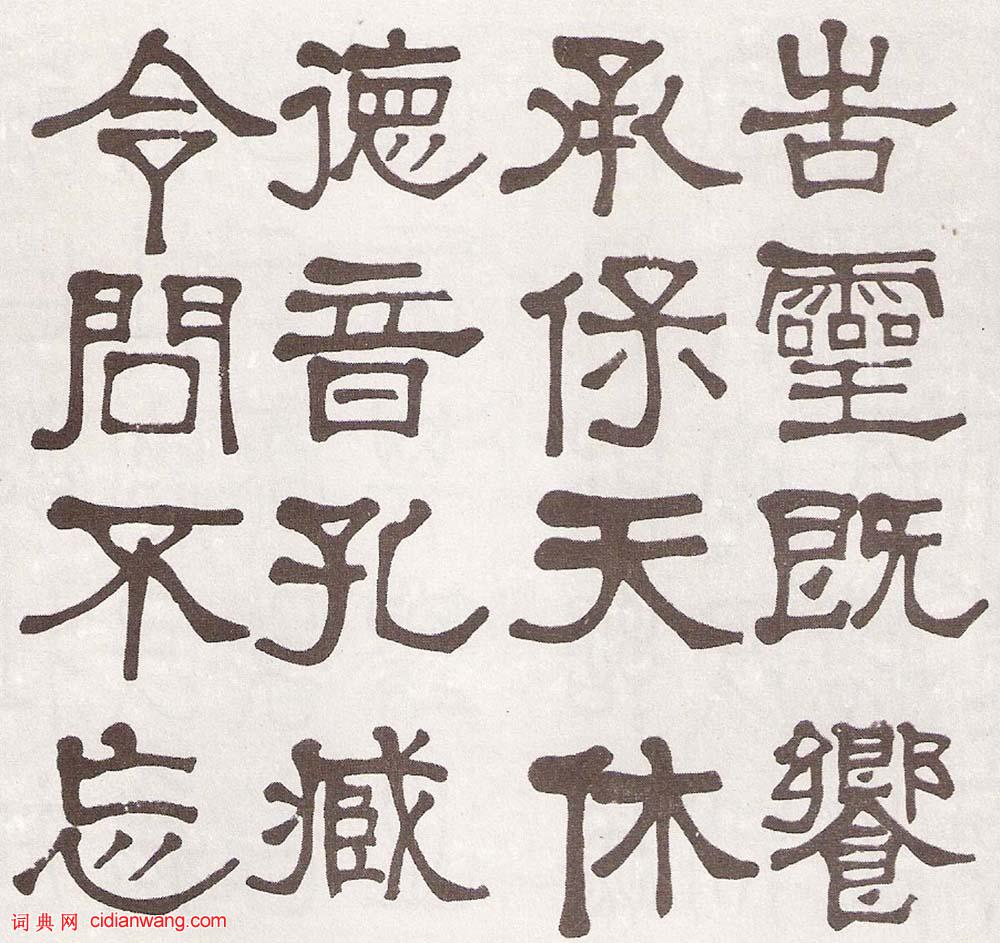 告靈既饗
承保天休
德音孔臧
令問不忘
词典网 cidianwang.com